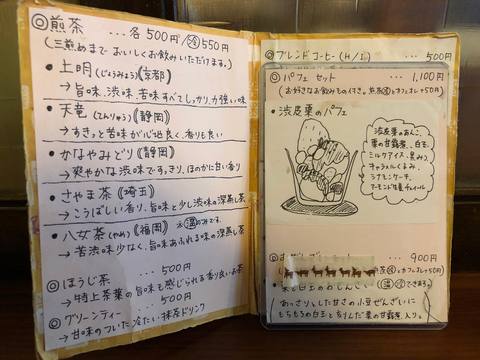 ◎煎茶 ... 各500円/冷550円
(三煎めまでおいしくお飲みいただけます。)
• 上明(じょうみょう)《京都》
→旨味、渋味、苦味すべてしっかり、力強い味
• 天竜(てんりゅう)《静岡》
→すきっと苦味が心地良く、香りも良い
• かなやみどり《静岡》
→爽やかな渋味ですっきり、ほのかに甘い香り
• さやま茶《埼玉》
→こうばしい香り、旨味と少し渋味の深蒸し茶
• 八女茶(やめ)《福岡》※温のみです。
→苦渋味少なく、旨味あふれる味の深蒸し茶
◎ほうじ茶 ... 500円
→特上茶葉の旨味も感じられる香り良いお茶
◎グリーンティー ... 500円
→甘味のついた冷たい抹茶ドリンク
◎ブレンドコーヒー(H/I) ... 500円
◎パフェセット ... 1,100円
(お好きなお飲みもの付き。煎茶冷とカフェオレ+50円)
• 渋皮栗のパフェ
渋皮栗のあんこ、
栗の甘露煮、白玉、
ミルクアイス、黒みつ、
キャラメルくるみ、
シフォンケーキ、
アーモンド生姜チュイール
セット ... 900円
カフェオレ+50円)
白玉おしるこ
できます。)
あっさりとした甘さの小豆ぜんざいに
もちもちの白玉と刻んだ栗の甘露煮入り。